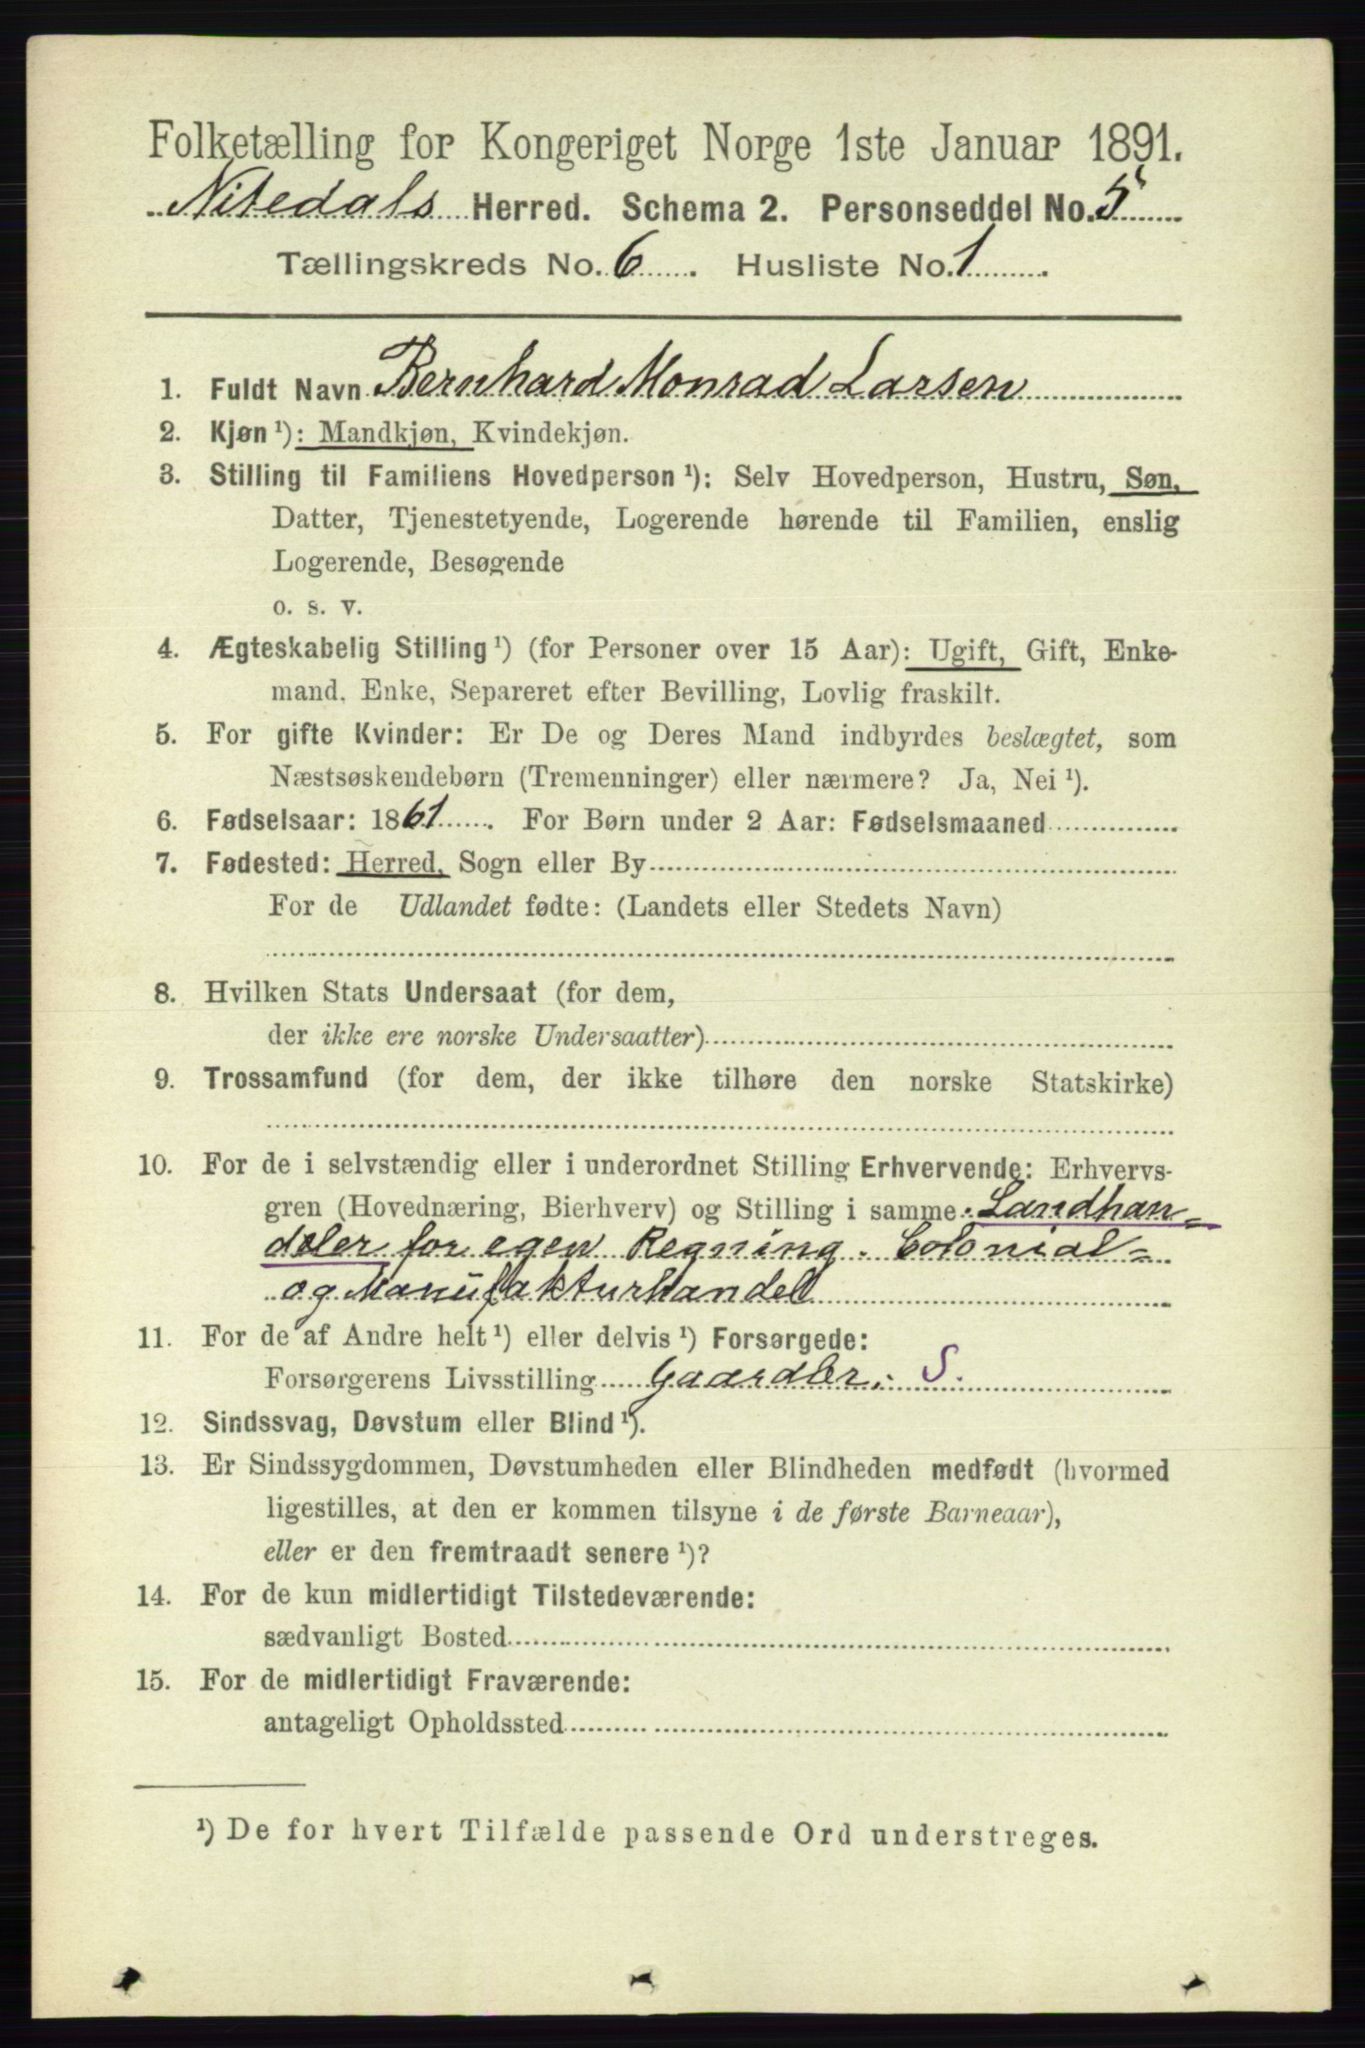 Folketælling for Kongeriget Norge 1ste Januar 1891.
Nitedals Herred. Schema 2. Personseddel No. 5
Tællingskreds No. 6. Husliste No. 1.
1. Fuldt Navn Bernhard Monrad Larsen
2. Kjøn ¹): Mandkjøn, Kvindekjøn.
3. Stilling til Familiens Hovedperson ¹): Selv Hovedperson, Hustru, Søn,
Datter, Tjenestetyende, Logerende hørende til Familien, enslig
Logerende, Besøgende
o. s. v.
4. Ægteskabelig Stilling ¹) (for Personer over 15 Aar): Ugift, Gift, Enke-
mand, Enke, Separeret efter Bevilling, Lovlig fraskilt.
5. For gifte Kvinder: Er De og Deres Mand indbyrdes beslægtet, som
Næstsøskendebørn (Tremenninger) eller nærmere? Ja, Nei ¹).
6. Fødselsaar: 1861. For Børn under 2 Aar: Fødselsmaaned
7. Fødested: Herred, Sogn eller By
For de Udlandet fødte: (Landets eller Stedets Navn)
8. Hvilken Stats Undersaat (for dem,
der ikke ere norske Undersaatter)
9. Trossamfund (for dem, der ikke tilhøre den norske Statskirke)
10. For de i selvstændig eller i underordnet Stilling Erhvervende: Erhvervs-
gren (Hovednæring, Bierhverv) og Stilling i samme. Landhan-
dler for egen Regning. Colonial-
og Manufakturhandel
11. For de af Andre helt ¹) eller delvis ¹) Forsørgede:
Forsørgerens Livsstilling Gaardbr. S.
12. Sindssvag, Døvstum eller Blind ¹).
13. Er Sindssygdommen, Døvstumheden eller Blindheden medfødt (hvormed
ligestilles, at den er kommen tilsyne i de første Barneaar),
eller er den fremtraadt senere ¹)?
14. For de kun midlertidigt Tilstedeværende:
sædvanligt Bosted
15. For de midlertidigt Fraværende:
antageligt Opholdssted
¹) De for hvert Tilfælde passende Ord understreges.